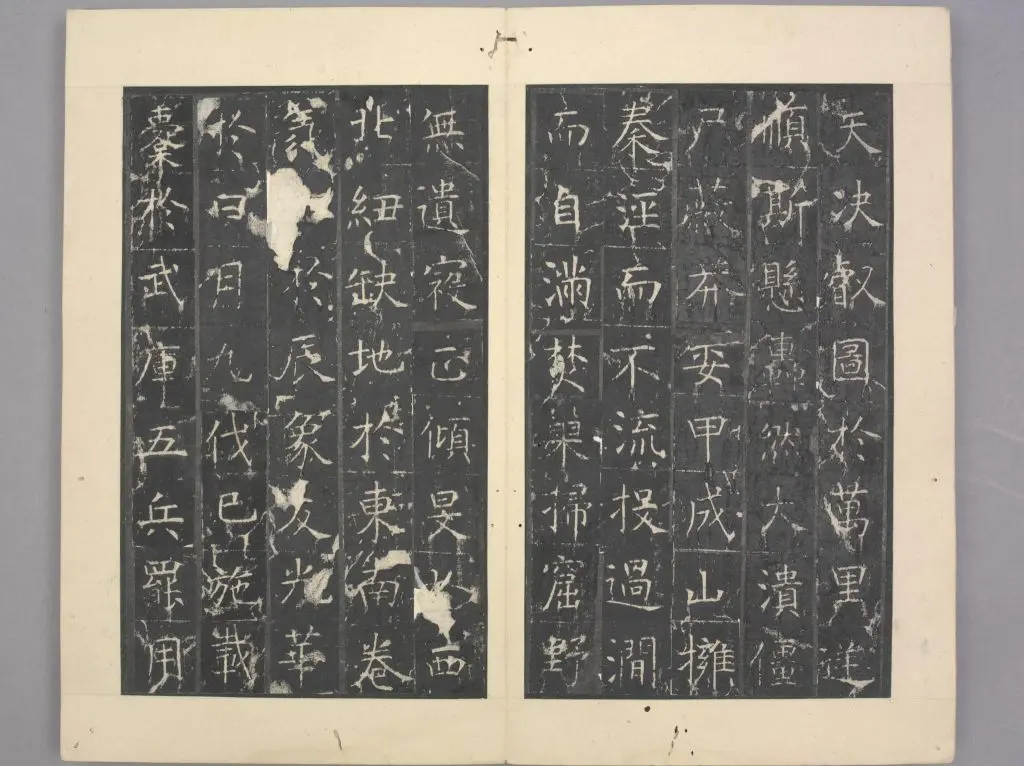 天决叡圖於萬里逆
順斯懸轟然大潰僵
尸蔽莽委甲成山擁
秦涇而不流投過澗
而自滿焚巢掃窟野
無遺寇正傾旻西
北紐缺地於東南卷
氛於辰象反光華
於日月九伐已施載
櫜於武庫五兵罷用